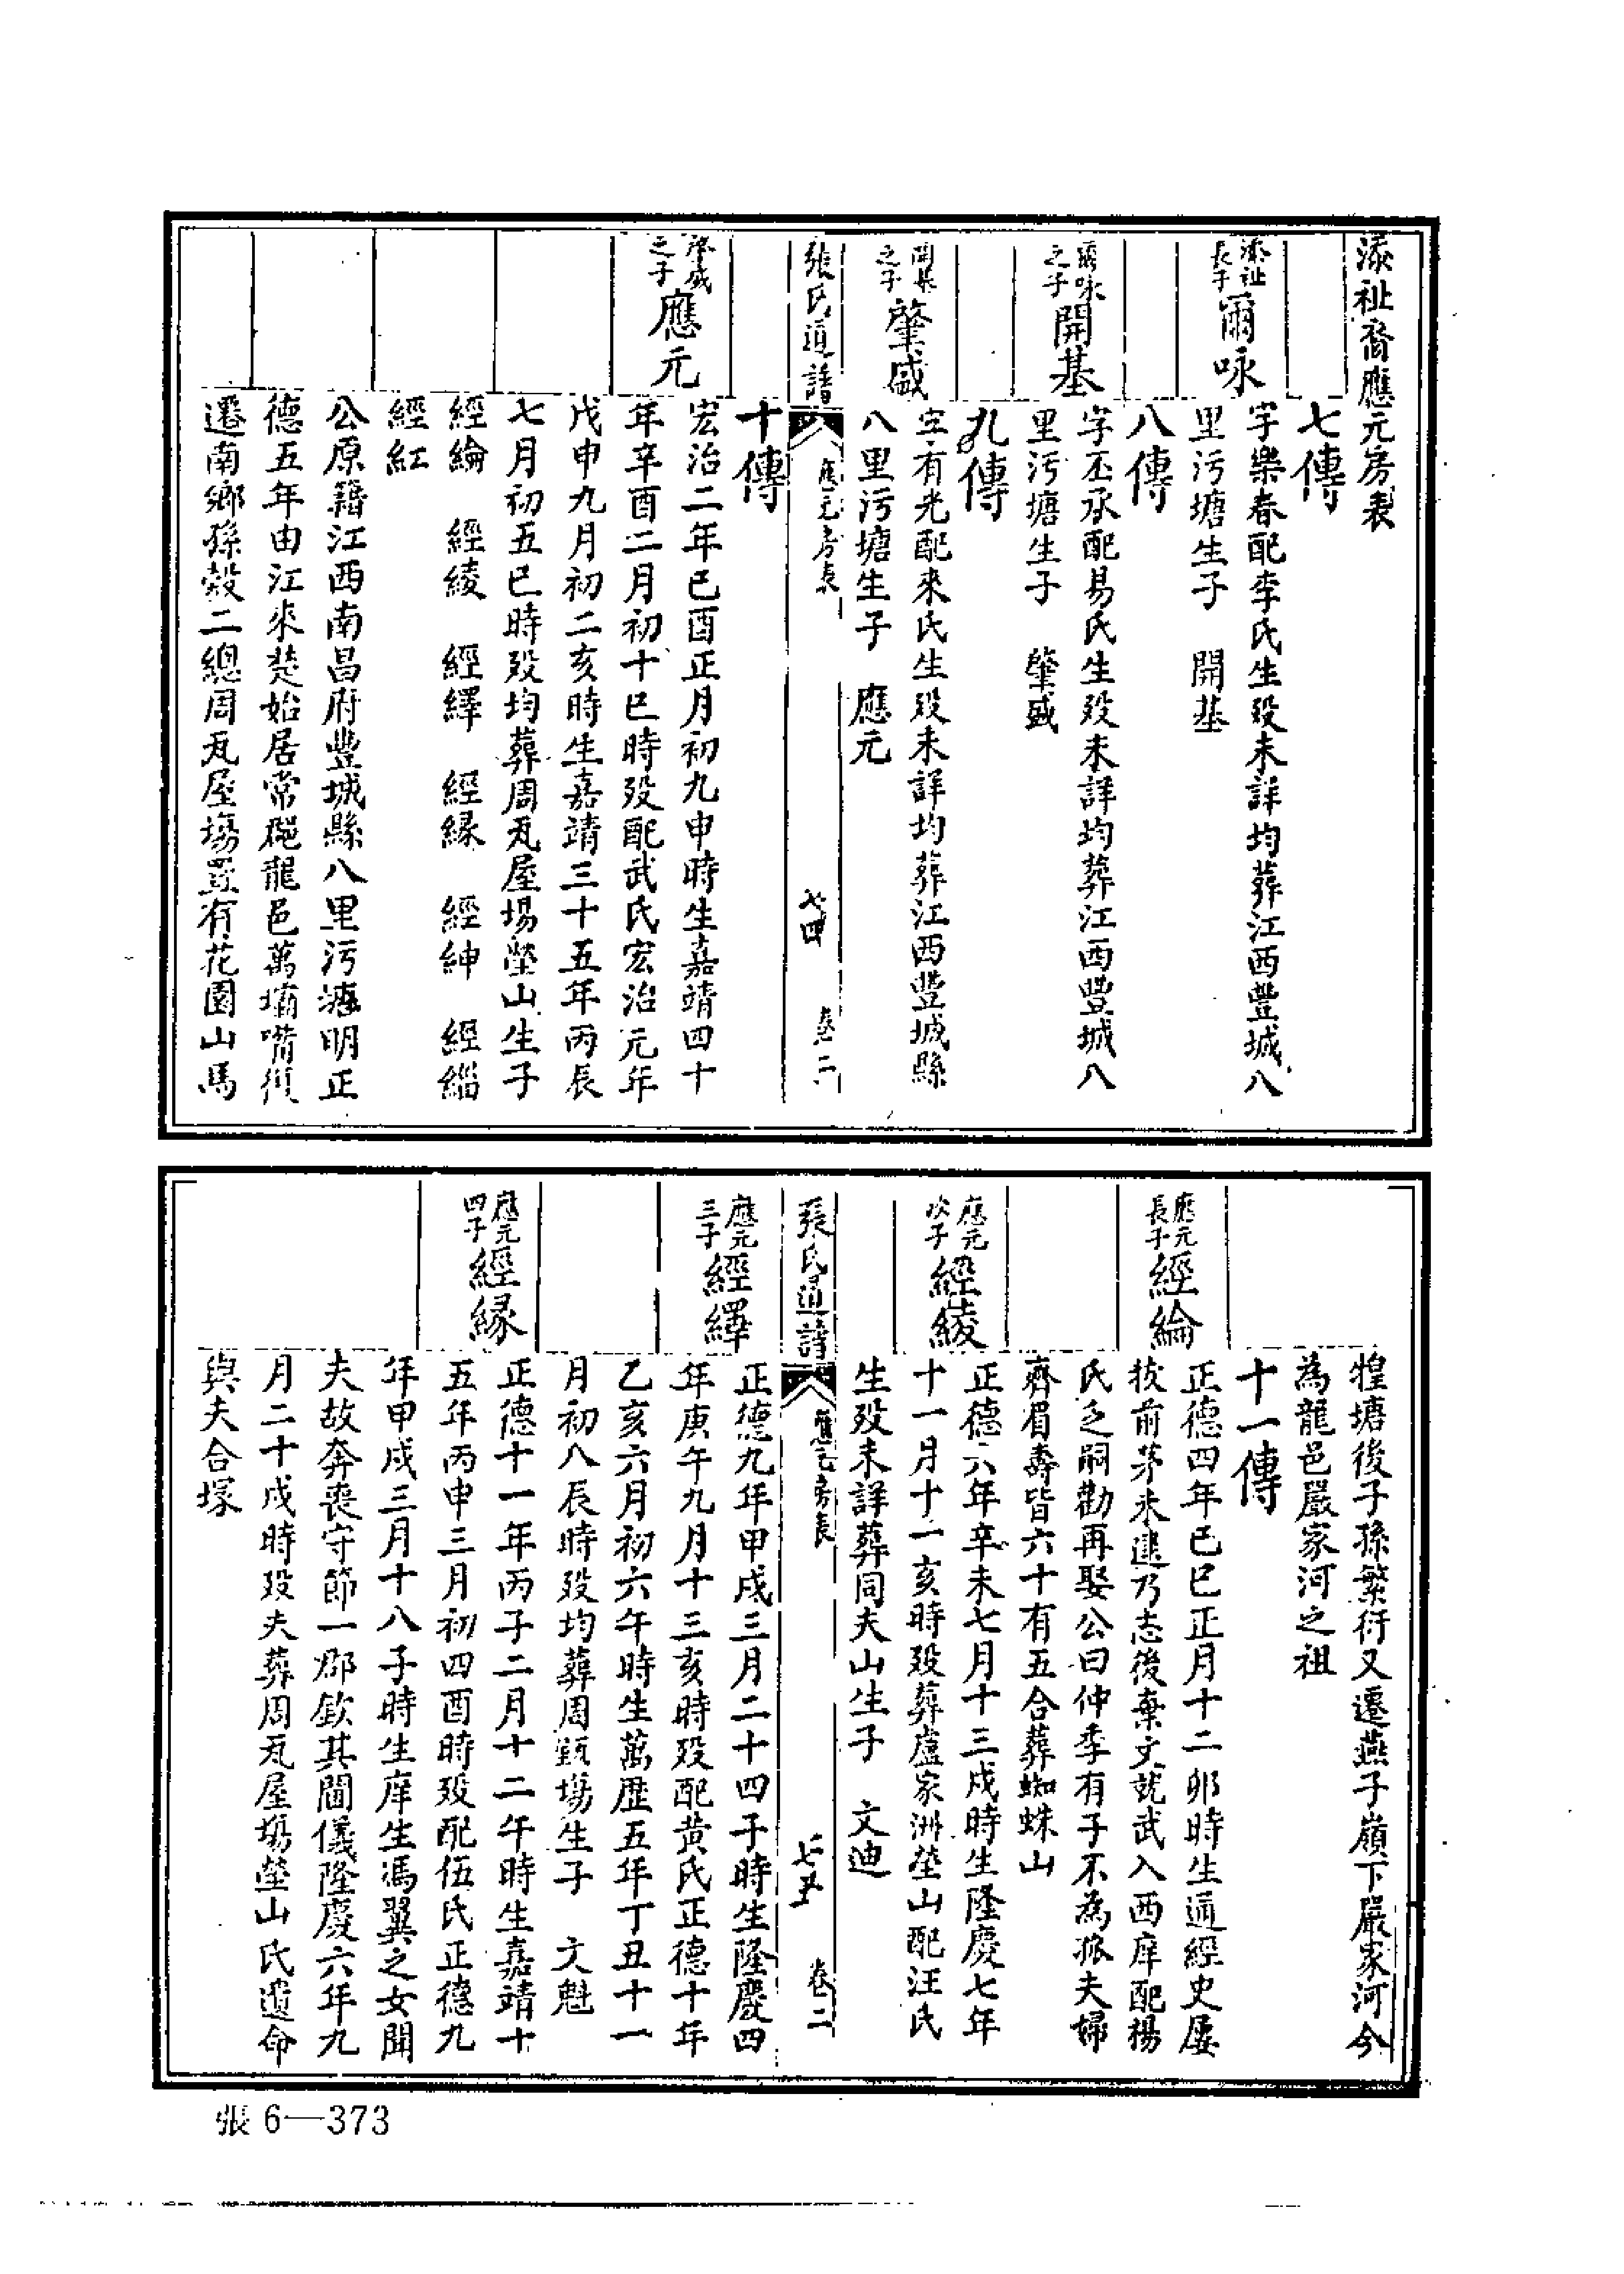 添祉裔應元房表
七傳
添祉長子 爾咏
字樂春配李氏生殁未詳均葬江西豐城八
里污塘生子 開基
八傳
爾咏之子 開基
字丕承配易氏生殁未詳均葬江西豐城八
里污塘生子 肇盛
九傳
開基之子 肇盛
字有光配來氏生殁未詳均葬江西豐城縣
八里污塘生子 應元
張氏通譜 應元房表 七四 卷二
十傳
肇盛之子 應元
宏治二年己酉正月初九申時生嘉靖四十
年辛酉二月初十巳時殁配武氏宏治元年
戊申九月初二亥時生嘉靖三十五年丙辰
七月初五巳時殁均葬周瓦屋場塋山生子
經綸 經綾 經繹 經緣 經紳 經緇
經紅
公原籍江西南昌府豐城縣八里污塘明正
德五年由江來楚始居常 龍邑萬壩嘴復
遷南鄉孫殼二總周瓦屋場置有花園山馬
𤠔塘後子孫繁衍又遷燕子嶺下嚴家河今
為龍邑嚴家河之祖
十一傳
應元長子 經綸
正德四年己巳正月十二卯時生通經史屢
拔前茅未逮乃志後棄文就武入西庠配楊
氏乏嗣勸再娶公曰仲季有子不為孤夫婦
齊眉壽皆六十有五合葬蜘蛛山
應元次子 經綾
正德六年辛未七月十三戌時生隆慶七年
十一月十一亥時殁葬盧家洲塋山配汪氏
生殁未詳葬同夫山生子 文迪
張氏通譜 應元房表 七五 卷二
應元三子 經繹
正德九年甲戌三月二十四子時生隆慶四
年庚午九月十三亥時殁配黄氏正德十年
乙亥六月初六午時生萬歷五年丁丑十一
月初八辰時殁均葬周甄場生子 文魁
應元四子 經緣
正德十一年丙子二月十二午時生嘉靖十
五年丙申三月初四酉時殁配伍氏正德九
年甲戌三月十八子時生庠生馮翼之女聞
夫故奔喪守節一郡欽其閫儀隆慶六年九
月二十戌時殁夫葬周瓦屋場塋山氏遺命
與夫合塚
張 6—373